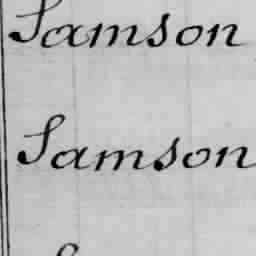 Samson
Samson